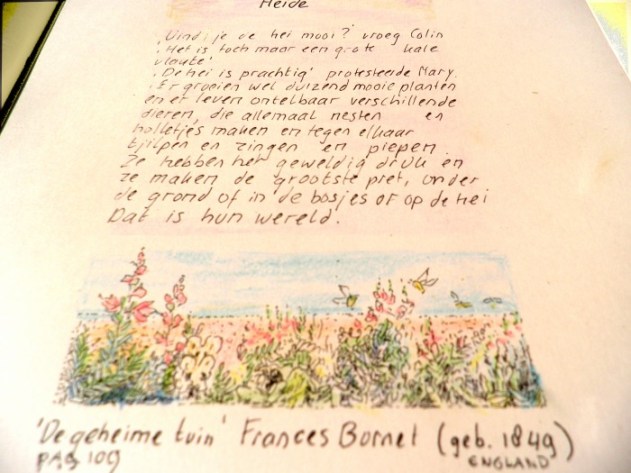 Heide
'Vind je de hei mooi?' vroeg Colin
'Het is toch maar een grote kale
vlakte'
'De hei is prachtig' protesteerde Mary.
'Er groeien wel duizend mooie planten
en er leven ontelbaar verschillende
dieren, die allemaal nesten en
holletjes maken en tegen elkaar
tjilpen en zingen en piepen.
Ze hebben het geweldig druk en
ze maken de grootste pret, onder
de grond of in de bosjes of op de hei
Dat is hun wereld.
'De geheime tuin' Frances Bornet (geb. 1849)
PAG 109 ENGLAND